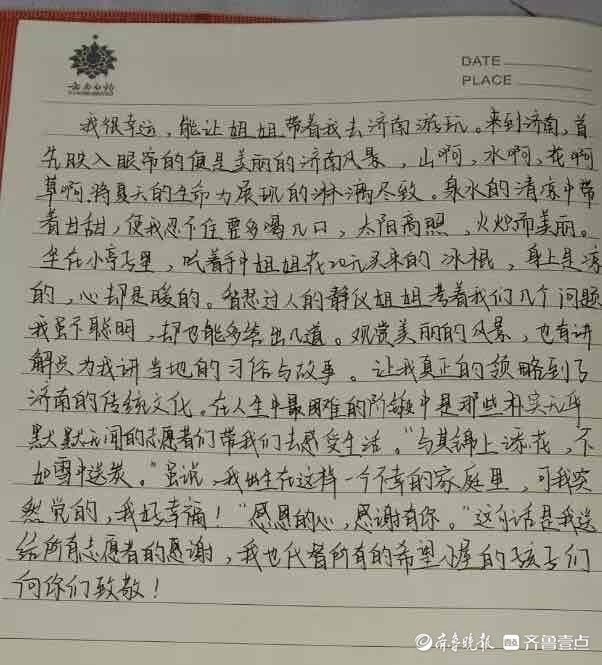 DATE
PLACE
我很幸运，能让姐姐带着我去济南游玩。来到济南，首
先映入眼帘的便是美丽的济南风景，山啊，水啊，花啊
草啊，将夏天的生命力展现的淋漓尽致。泉水的清凉中带
着甘甜，使我忍不住要多喝几口，太阳高照，火炽而美丽。
坐在小亭子里，吃着手中姐姐花20元买来的冰棍，身上是凉
的，心却是暖的。智慧过人的静仪姐姐考着我们几个问题
我虽不聪明，却也能多答出几道。观赏美丽的风景，也有讲
解员为我讲当地的习俗与故事。让我真正的领略到了
济南的传统文化。在人生中最困难的阶段中是那些朴实无华
默默无闻的志愿者们带我们去感受生活。“与其锦上添花，不
如雪中送炭。”虽说，我出生在这样一个不幸的家庭里，可我突
然觉的，我好幸福！“感恩的心，感谢有你。”这句话是我送
给所有志愿者的感谢，我也代替所有的希望小屋的孩子们
向你们致敬！
齐鲁晚报 齐鲁壹点